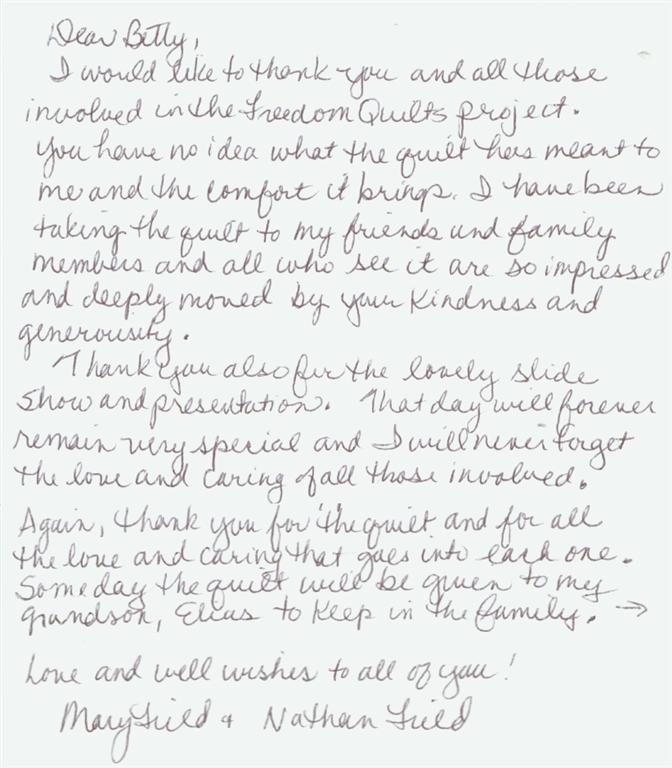 Dear Betty,
I would like to thank you and all those
involved in the Freedom Quilts project.
You have no idea what the quilt has meant to
me and the comfort it brings. I have been
taking the quilt to my friends and family
members and all who see it are so impressed
and deeply moved by your kindness and
generousity.
Thank you also for the lovely slide
show and presentation. That day will forever
remain very special and I will never forget
the love and caring of all those involved.
Again, thank you for the quilt and for all
the love and caring that goes into each one.
Someday the quilt will be given to my
grandson, Elias to keep in the family. →
Love and well wishes to all of you!
Mary Field + Nathan Field